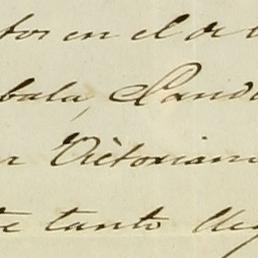 tos en el de
bala, Land
n Victorian
te tanto lleg